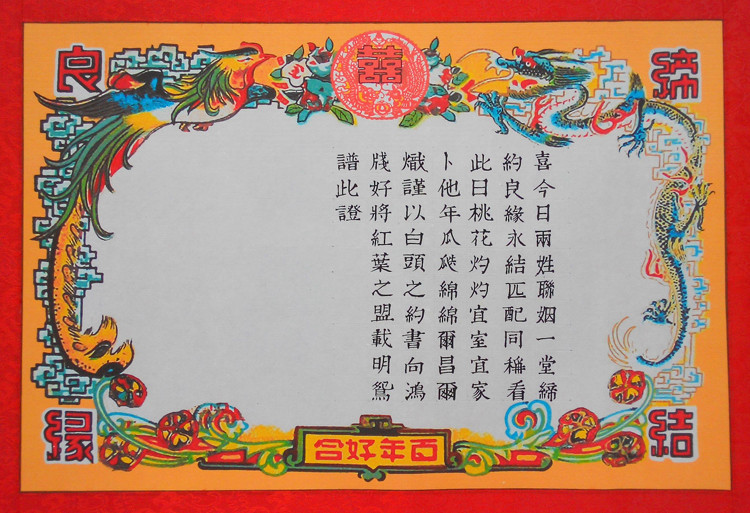 囍
締結
良緣
喜今日兩姓聯姻一堂締
約良緣永結匹配同稱看
此日桃花灼灼宜室宜家
卜他年瓜瓞綿綿爾昌爾
熾謹以白頭之約書向鴻
牋好將紅葉之盟載明鴛
譜此證
百年好合